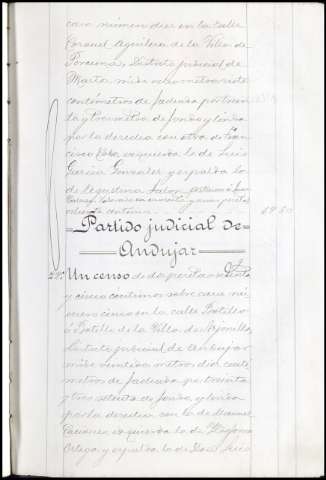 casa número diez en la calle
Coronel Aguilera de la Villa de
Porcuna, distrito judicial de
Martos mide ocho metros siete
centímetros de fachada por treinta
y tres metros de fondo y linda
por la derecha con otra de Fran
cisco Coba izquierda la de Luis
García Gonzalez y espalda la
de Agustina Salon
ochenta centimos 49 80
Partido judicial de
Andujar
28º Un censo de dos pesetas setenta
y cinco centimos sobre casa nú
mero cinco en la calle Postillo
ó Potillo de la Villa de Arjonilla
distrito judicial de Andujar
mide veintiun metros diez centí
metros de fachada por treinta
y tres setenta de fondo y linda
por la derecha con la de Manuel
Cacionez izquierda la de
Ortega y espalda la de Don